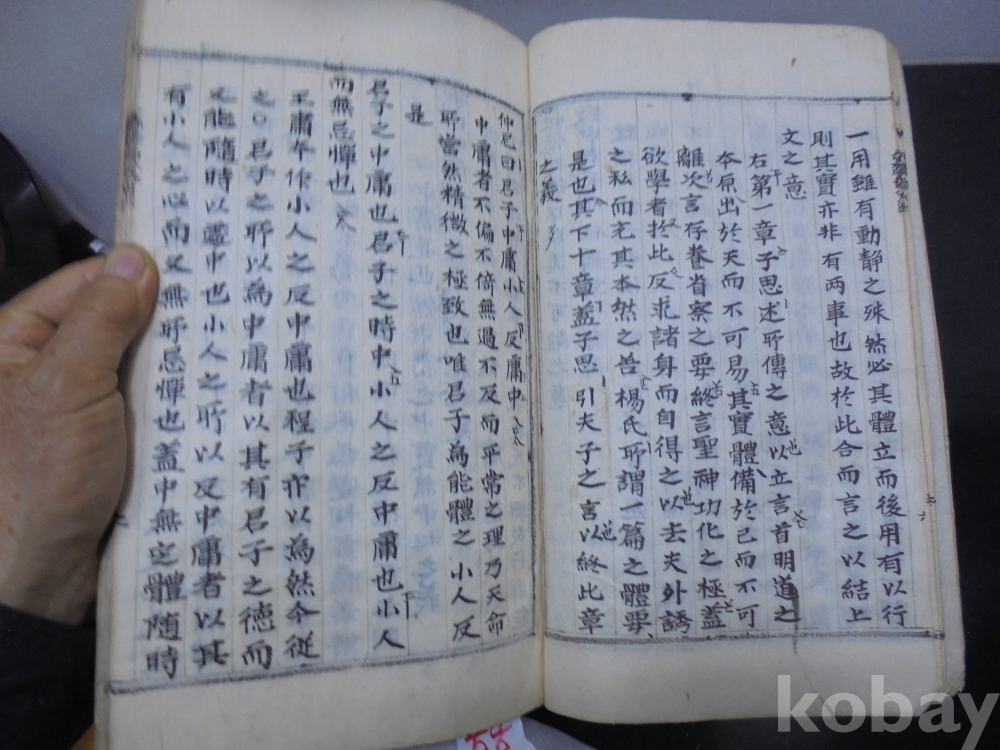 一用雖有動靜之殊然必其體立而後用有以行
則其實亦非有两事也故於此合而言之以結上
文之意
右第一章子思述所傳之意以立言首明道之
本原出於天而不可易其實體備於已而不可
離次言存養省察之要終言聖神功化之極盖
欲學者於此反求諸身而自得之以去夫外誘
之私而充其本然之善楊氏所謂一篇之體要
是也其下十章盖子思引夫子之言以終此章
之義
仲尼曰君子中庸小人反庸中
中庸者不偏不倍無過不反而平常之理乃天命
所當然精微之極致也唯君子為能體之小人反
是
君子之中庸也君子之時中小人之反中庸也小人
而無忌憚也
王肅本作小人之反中庸也程子亦以為然今從
之○君子之所以為中庸者以其有君子之德而
又能隨時以處中也小人之所以反中庸者以其
有小人之心而又無所忌憚也蓋中無定體隨時
kobay